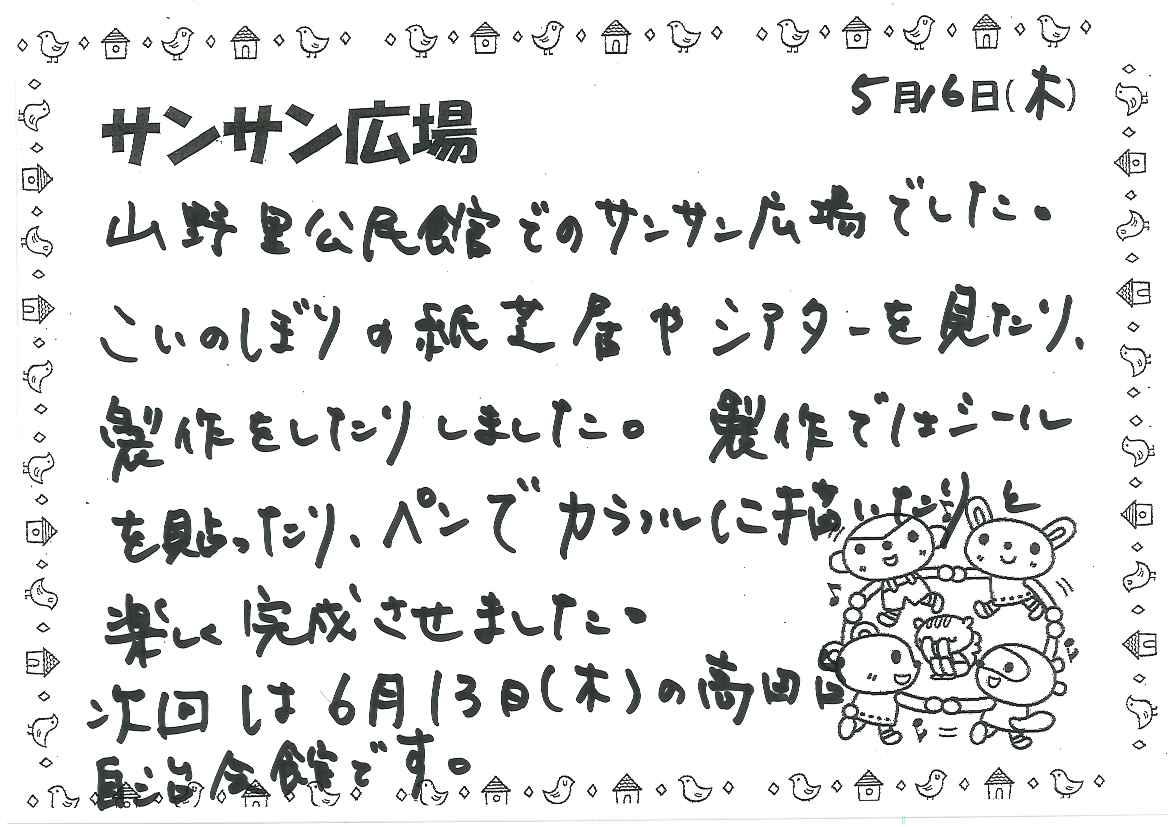 5月16日(木)
サンサン広場
山野里公民館でのサンサン広場でした。
こいのぼりの紙芝居やシアターを見たり、
製作をしたりしました。 製作ではシール
を貼ったり、ペンでカラフルに手描いたりと
楽しく完成させました。
次回は6月13日(木)の高田
自治会館です。